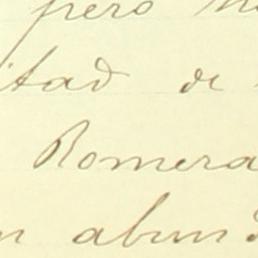 pero
itad de
Romera
n abun